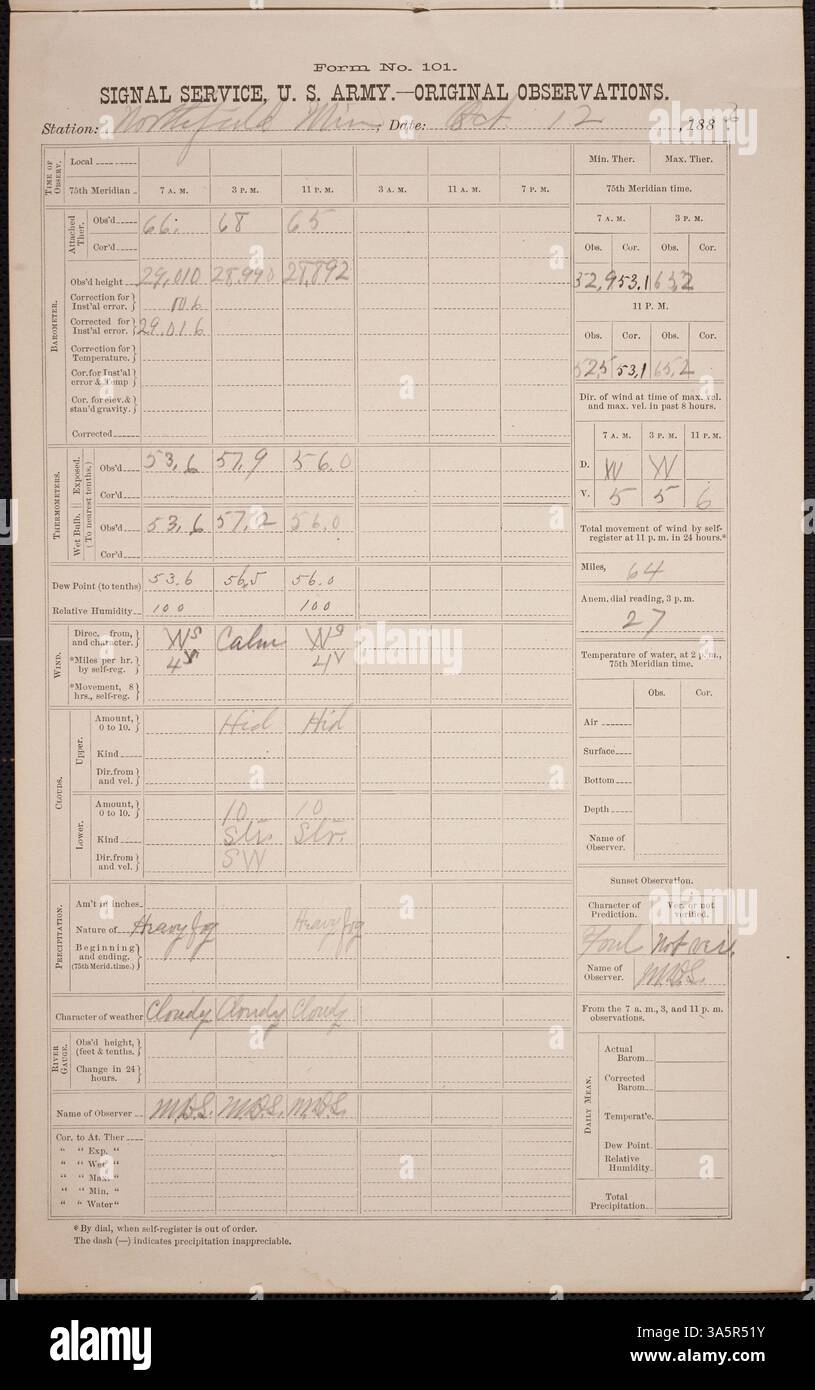 Form No. 101.
SIGNAL SERVICE, U. S. ARMY.—ORIGINAL OBSERVATIONS.
Station: Northfield Minn, Date: Oct. 12, 188
TIME OF OBSERV.
Local
75th Meridian
7 A. M. 3 P. M. 11 P. M. 3 A. M. 11 A. M. 7 P. M.
BAROMETER.
Attached Ther.
Obs'd 66. 68 65
Cor'd
Obs'd height 29,010 28.990 28,892
Correction for Inst'al error. 106
Corrected for Inst'al error. 29.016
Correction for Temperature.
Cor. for Inst'al error & Temp
Cor. for elev. & stan'd gravity.
Corrected
THERMOMETERS.
Wet Bulb. Exposed.
(To nearest tenths.)
Obs'd 53,6 57,9 56.0
Cor'd
Obs'd 53,6 57,2 56.0
Cor'd
Dew Point (to tenths) 53.6 56,5 56.0
Relative Humidity 100 100
WIND.
Direc. from, and character. Calm
*Miles per hr. by self-reg. 4 4
*Movement, 8 hrs., self-reg.
CLOUDS.
Upper.
Amount, 0 to 10. Hid Hid
Kind
Dir. from and vel.
Lower.
Amount, 0 to 10. 10 10
Kind Str. Str.
Dir. from and vel. SW
PRECIPITATION.
Am't in inches
Nature of Heavy fog Heavy fog
Beginning and ending.
(75th Merid. time.)
Character of weather Cloudy Cloudy Cloudy
RIVER GAUGE.
Obs'd height, (feet & tenths.
Change in 24 hours.
Name of Observer M.D.S. M.D.S. M.D.S.
Cor. to At. Ther
“ “ Exp. “
“ “ Wet “
“ “ Max. “
“ “ Min. “
“ “ Water“
* By dial, when self-register is out of order.
The dash (—) indicates precipitation inappreciable.
Min. Ther. Max. Ther.
75th Meridian time.
7 A. M. 3 P. M.
Obs. Cor. Obs. Cor.
52,9 53.1 63,2
11 P. M.
Obs. Cor. Obs. Cor.
52,5 53,1 65,2
Dir. of wind at time of max. vel. and max. vel. in past 8 hours.
7 A. M. 3 P. M. 11 P. M.
D. W W
V. 5 5 6
Total movement of wind by self-register at 11 p. m. in 24 hours.*
Miles, 64
Anem. dial reading, 3 p. m.
27
Temperature of water, at 2 p. m., 75th Meridian time.
Obs. Cor.
Air
Surface
Bottom
Depth
Name of Observer.
Sunset Observation.
Character of Prediction. Ver. or not verified.
Foul Not ver.
Name of Observer. M.D.S.
From the 7 a. m., 3, and 11 p. m. observations.
DAILY MEAN.
Actual Barom
Corrected Barom
Temperat'e.
Dew Point.
Relative Humidity
Total Precipitation
alamy
a
alamy
Image ID: 3A5R51Y
www.alamy.com